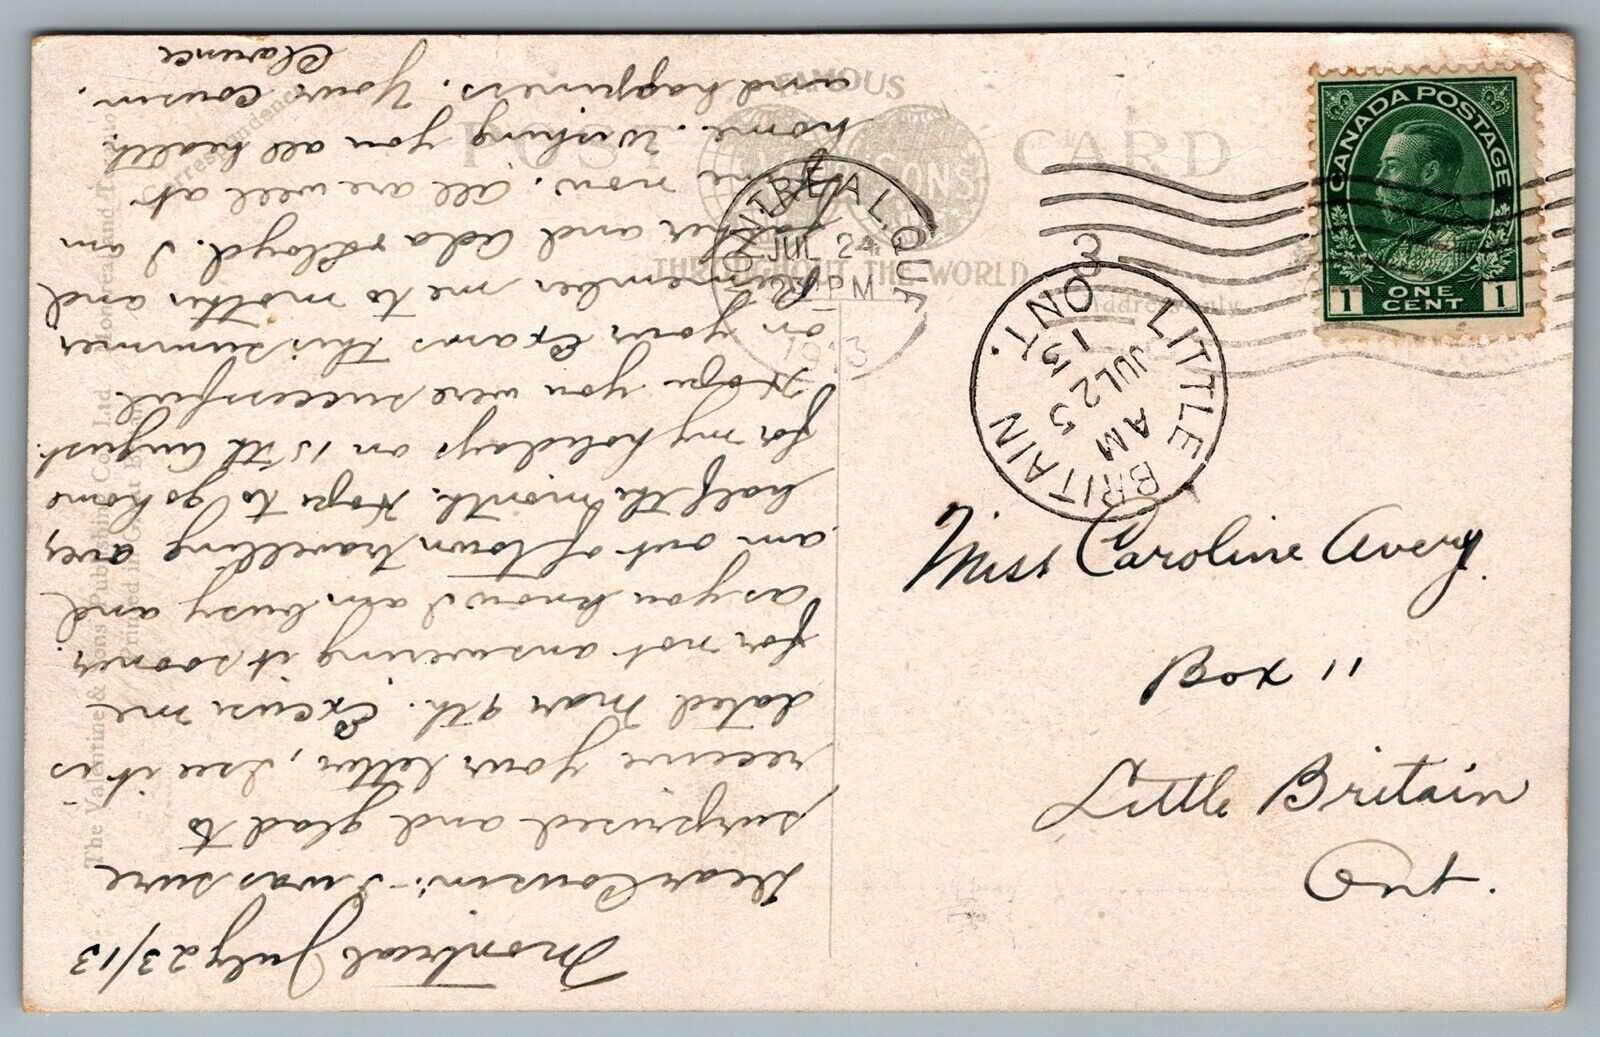 Montreal July 23/13
Dear Cousin:- I was sure
surprised and glad to
receive your letter, I see it is
dated Mar 9th. Excuse me
for not answering it sooner.
as you know I am busy and
am out of town travelling over
half the month. Hope to go home
for my holidays on 15th August.
Hope you were successful
on your Exams this summer
Remember me to mother and
father and Ada & Lloyd. I am
fine now. All are well at
home. Wishing you all health
and happiness. Your cousin,
Clarence
FAMOUS
POST CARD
SONS
THROUGHOUT THE WORLD
Correspondence
Address Only
The Valentine & Sons Publishing Co., Ltd., Montreal and Toronto
Printed in Great Britain
MONTREAL, QUE
JUL 24
PM
1913
LITTLE BRITAIN ONT.
AM
JUL 25
13
CANADA POSTAGE
1 ONE CENT 1
Miss Caroline Avery.
Box 11
Little Britain
Ont.